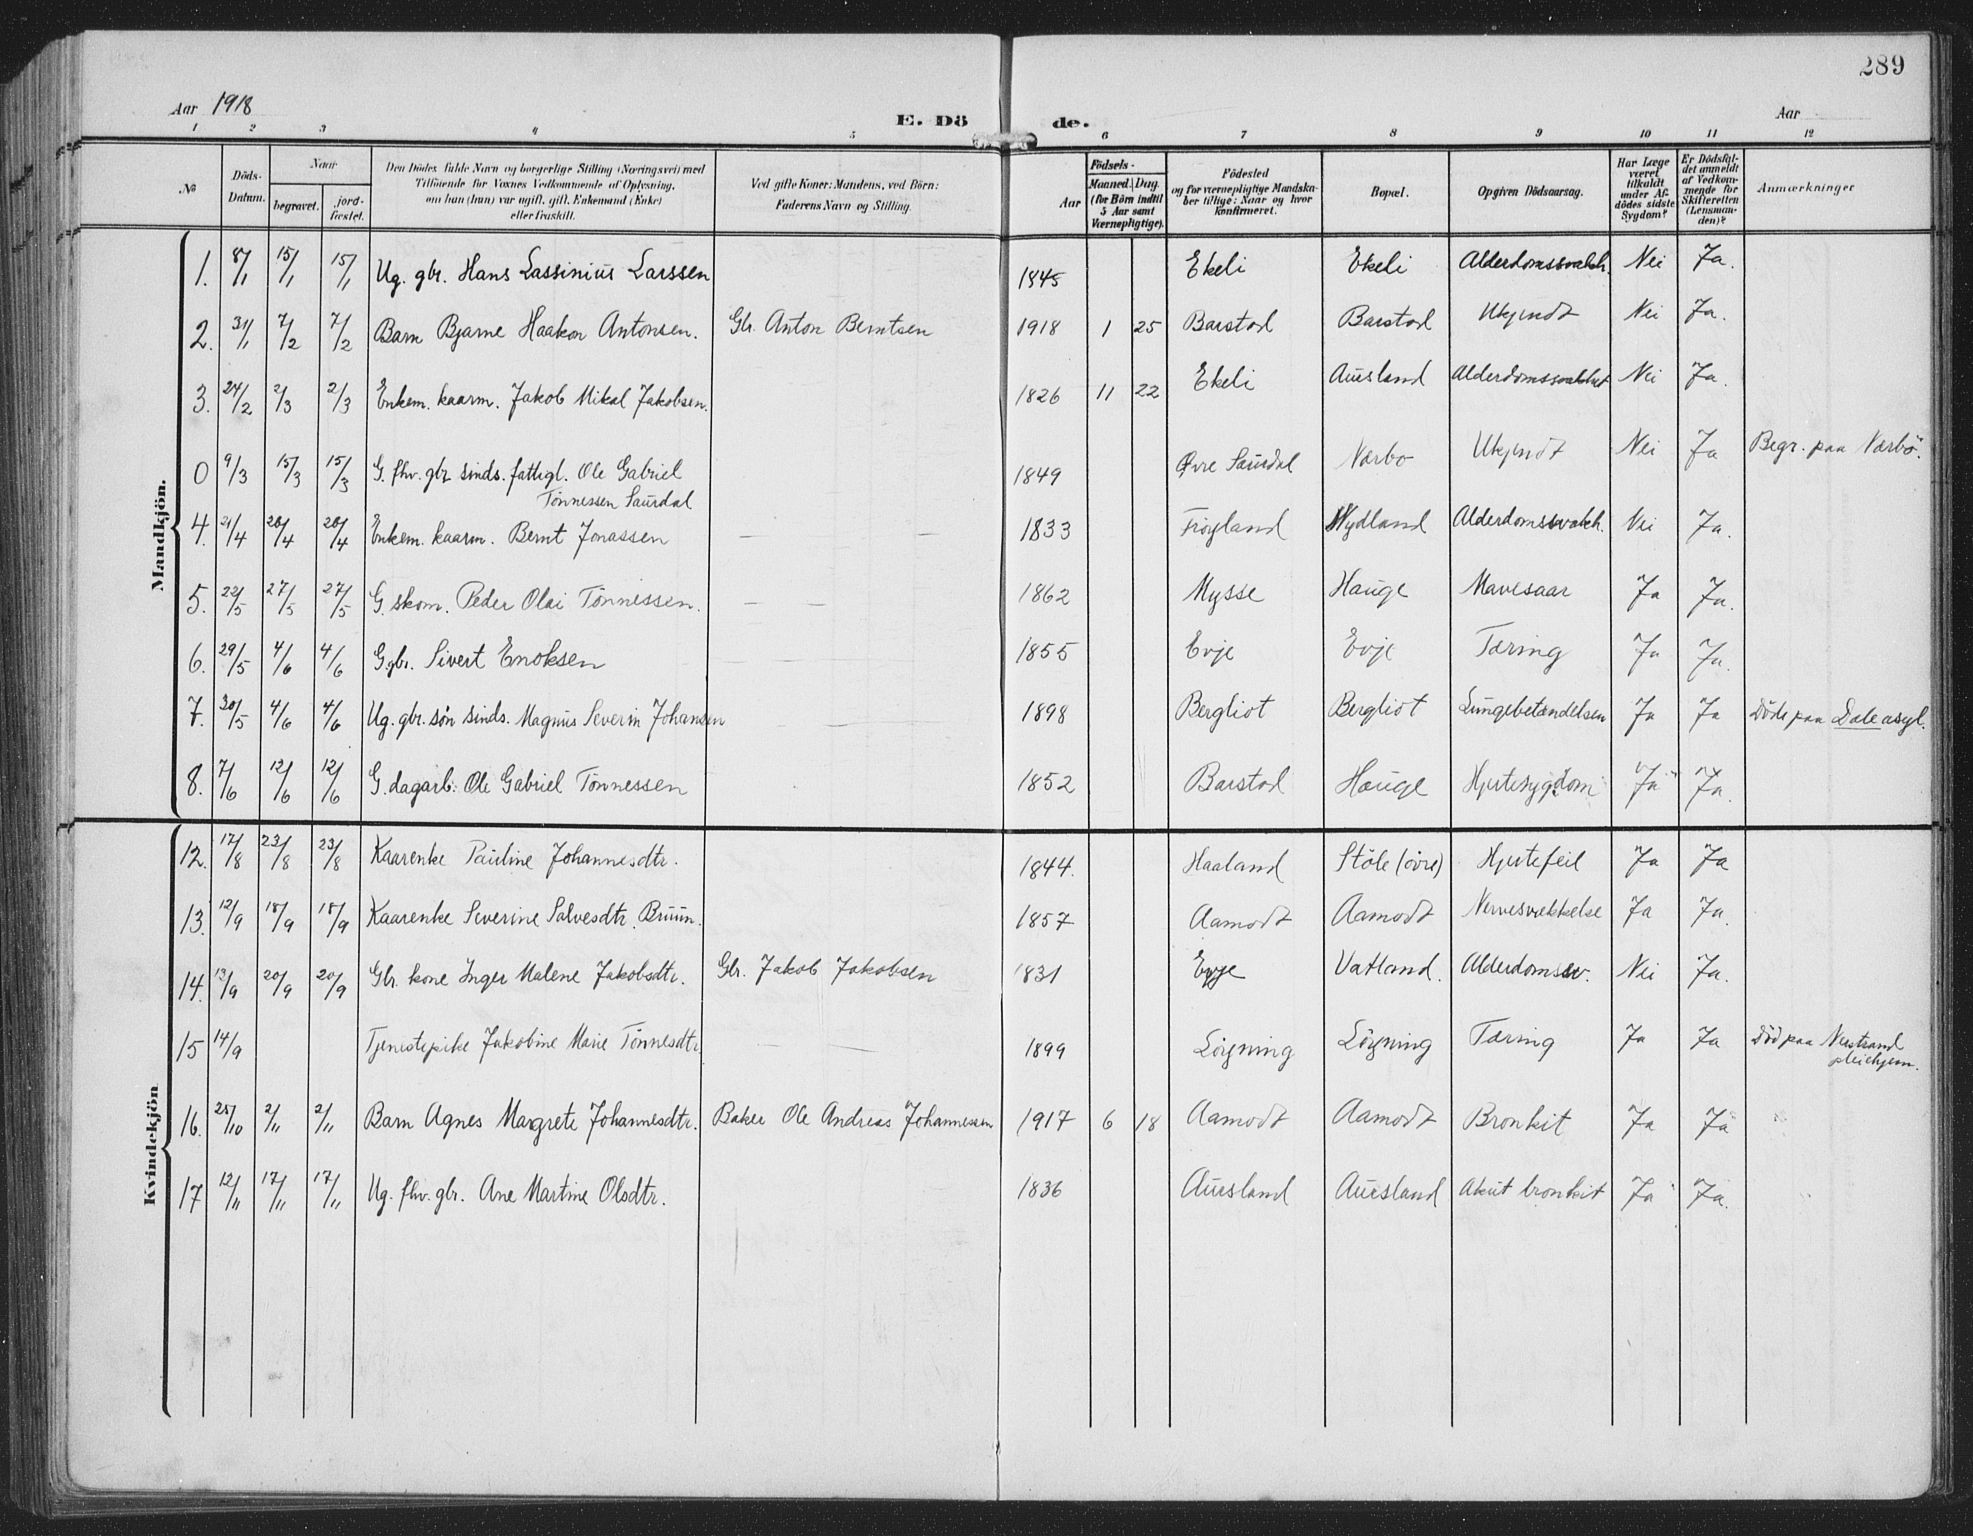 289
Aar 1918
E. Dö de.
Aar
1 2 3 4 5 6 7 8 9 10 11 12
No
Döds-Datum.
Naar
begravet.
jord-fæstet.
Den Dödes fulde Navn og borgerlige Stilling (Næringsvei) med
Tilföiende for Voxnes Vedkommende af Oplysning,
om han (hun) var ugift, gift, Enkemand (Enke)
eller fraskilt.
Ved gifte Koner: Mandens, ved Börn:
Faderens Navn og Stilling.
Födsels-
Aar
Maaned. Dag.
(for Börn indtil
5 Aar samt
Værnepligtige).
Födested
og for værnepligtige Mandska-
ber tillige: Naar og hvor
konfirmeret.
Bopæl.
Opgiven Dödsaarsag.
Har Læge
været
tilkaldt
under Af-
dödes sidste
Sygdom?
Er Dödsfal-
det anmeldt
af Vedkom-
mende for
Skifteretten
(Lensman-
den)?
Anmærkninger
Mandkjön.
1. 8/1 15/1 15/1 Ug. gbr. Hans Lassinius Larssen 1845 Ekeli Ekeli Alderdomssvakh. Nei Ja.
2. 31/1 7/2 7/2 Barn Bjarne Haakon Antonsen. Gbr. Anton Berntsen 1918 1 25 Barstad Barstad Ukjendt Nei Ja.
3. 24/2 2/3 2/3 Enkem. kaarm. Jakob Mikal Jakobsen. 1826 11 22 Ekeli Auesland Alderdomssvakhet Nei Ja.
0 9/3 15/3 15/3 G. fhv. gbr sinds. fattigl. Ole Gabriel 1849 Øvre Saurdal Nærbo Ukjendt Nei Ja Begr. paa Nærbö.
Tönnessen Saurdal
4. 21/4 28/4 28/4 Enkem. kaarm. Bernt Jonassen — — 1833 Frøyland Nydland Alderdomssvakh. Nei Ja.
5. 22/5 27/5 27/5 G. skom. Peder Olai Tönnessen. — — 1862 Mysse Hauge Mavesaar Ja Ja.
6. 29/5 4/6 4/6 G gbr. Sivert Enoksen 1855 Evje Evje Tæring Ja Ja.
7. 30/5 4/6 4/6 Ug. gbr. søn sinds. Magnus Severin Johansen 1898 Bergliot Bergliot Lungebetændelsen Ja Ja Döde paa Dale asyl.
8. 7/6 12/6 12/6 G. dagarb. Ole Gabriel Tönnessen 1852 Barstad Hauge Hjertesygdom Ja Ja.
Kvindekjön
12. 17/8 23/8 23/8 Kaarenke Pauline Johannesdtr. 1844. Haaland Stöle (övre) Hjertefeil Ja Ja
13. 12/9 18/9 18/9 Kaarenke Severine Salvesdtr. Bruun. 1857 Aamodt Aamodt Nervesvækkelse Ja Ja.
14. 13/9 20/9 20/9 Gbr. kone Inger Malene Jakobsdtr. Gbr. Jakob Jakobsen 1831 Evje Vatland. Alderdomssv. Nei Ja.
15 14/9 Tjenestepike Jakobine Marie Tönnesdtr 1899 Lögning Lögning Tæring Ja Ja Död paa Nerstrand
pleiehjem.
16. 25/10 2/11 2/11 Barn Agnes Margrete Johannesdtr. Baker Ole Andreas Johannessen 1917 6 18 Aamodt Aamodt Bronkit Ja Ja
17 12/11 17/11 17/11 Ug. fhv. gbr. Ane Martine Olsdtr. 1836 Auesland Auesland Akut bronkit Ja Ja.